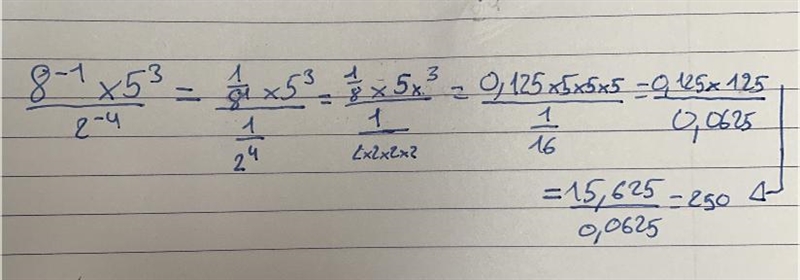 8⁻¹ × 5³ / 2⁻⁴ = 1/8¹ × 5³ / 1/2⁴ = 1/8 × 5 × ³ / 1/2×2×2×2 = 0,125 × 5 × 5 × 5 / 1/16 = 0,125 × 125 / 0,0625
= 15,625 / 0,0625 = 250